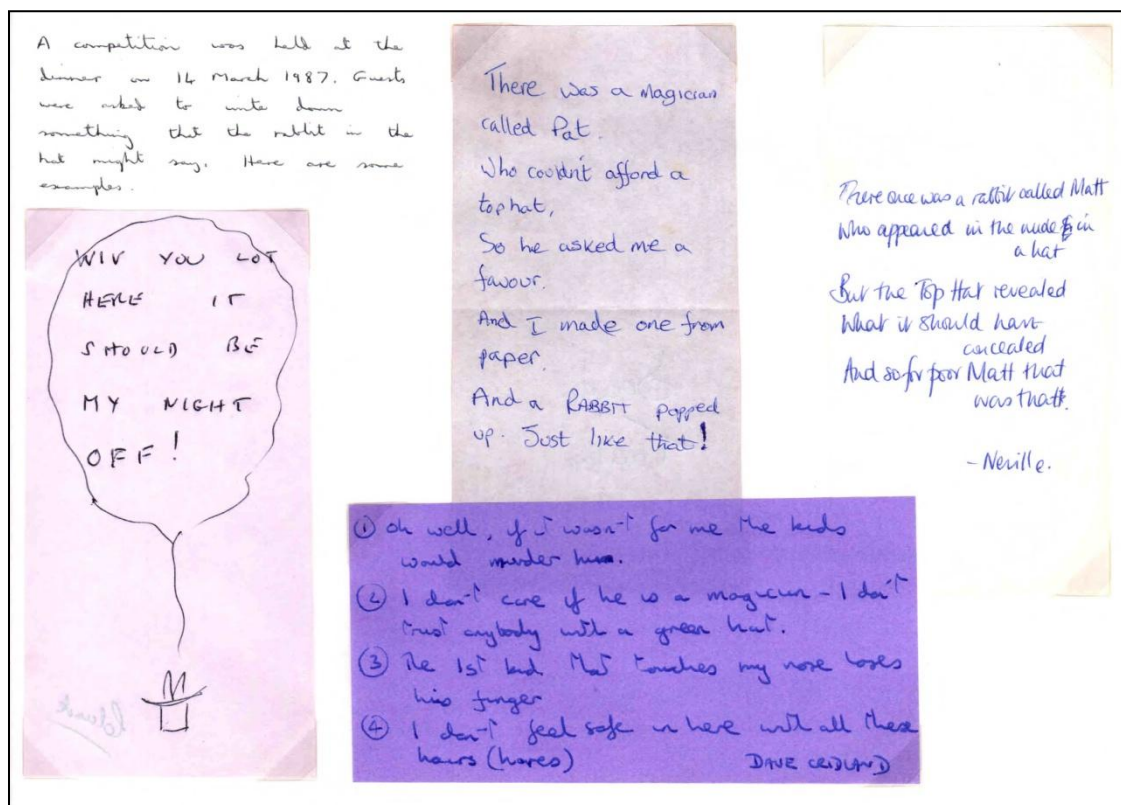 A competition was held at the
dinner on 14 March 1987. Guests
were asked to write down
something that the rabbit in the
hat might say. Here are some
examples.
WIV YOU LOT
HERE IT
SHOULD BE
MY NIGHT
OFF!
There was a magician
called Pat.
Who couldn't afford a
top hat,
So he asked me a
favour.
And I made one from
paper.
And a RABBIT popped
up. Just like that!
There once was a rabbit called Matt
Who appeared in the nude in
a hat
But the Top Hat revealed
What it should have
concealed
And so for poor Matt that
was thatt.
- Neville.
① Oh well, if it wasn't for me the kids
would murder him.
② I don't care if he is a magician - I don't
trust anybody with a green hat.
③ The 1st kid that touches my nose loses
his finger
④ I don't feel safe in here with all these
(hares)
DAVE CRIDLAND